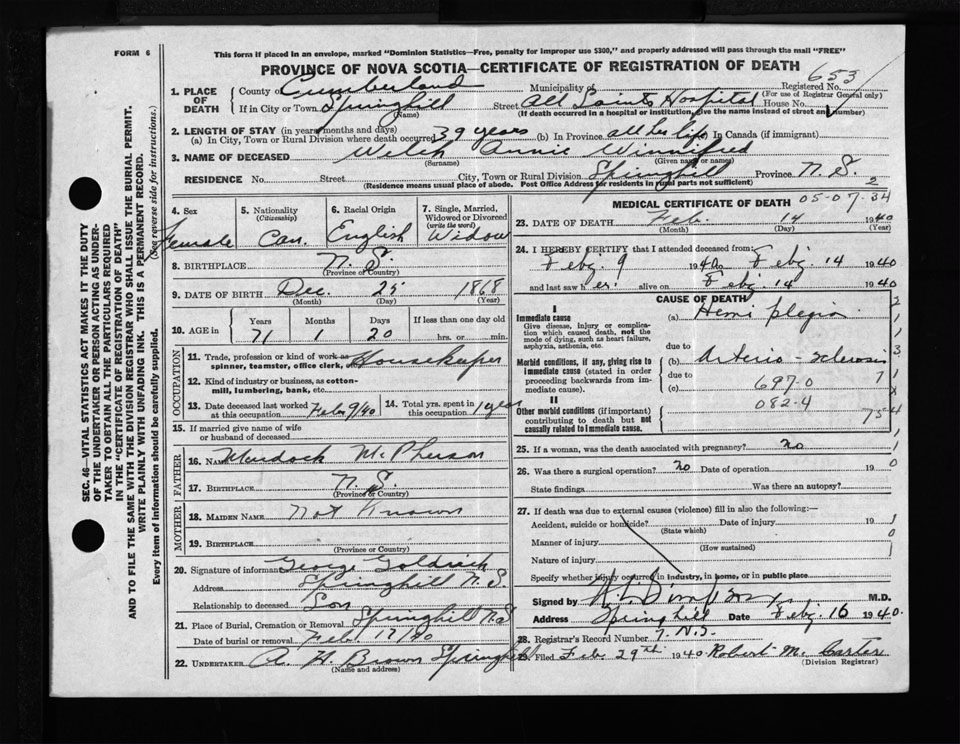 FORM 6
This form if placed in an envelope, marked "Dominion Statistics—Free, penalty for improper use $300," and properly addressed will pass through the mail "FREE"
PROVINCE OF NOVA SCOTIA—CERTIFICATE OF REGISTRATION OF DEATH
653
1. PLACE OF DEATH
County of Cumberland Municipality of Registered No.
(For use of Registrar General only)
If in City or Town Springhill Street All Saints Hospital House No.
(Name) (If death occurred in a hospital or institution, give the name instead of street and number)
2. LENGTH OF STAY (in years, months and days)
(a) In City, Town or Rural Division where death occurred 39 years (b) In Province all her life In Canada (if immigrant)
3. NAME OF DECEASED Welch Annie Winnifred
(Surname) (Given name or names)
RESIDENCE No. Street City, Town or Rural Division Springhill Province N.S.
(Residence means usual place of abode. Post Office Address for residents in rural parts not sufficient)
2
4. Sex Female
5. Nationality (Citizenship) Can.
6. Racial Origin English
7. Single, Married, Widowed or Divorced (write the word) Widow
8. BIRTHPLACE N.S.
(Province or Country)
9. DATE OF BIRTH Dec. 25 1868
(Month) (Day) (Year)
10. AGE in Years Months Days If less than one day old
71 1 20 hrs. or min.
OCCUPATION
11. Trade, profession or kind of work as spinner, teamster, office clerk, etc. Housekeeper
12. Kind of industry or business, as cotton-mill, lumbering, bank, etc.
13. Date deceased last worked at this occupation Feb 9/40
14. Total yrs. spent in this occupation 1 year
15. If married give name of wife or husband of deceased
FATHER
16. NAME Murdock McPherson
17. BIRTHPLACE N.S.
(Province or Country)
MOTHER
18. MAIDEN NAME Not Known
19. BIRTHPLACE
(Province or Country)
20. Signature of informant George Goldrich
Address Springhill N.S.
Relationship to deceased Son
21. Place of Burial, Cremation or Removal Springhill N.S
Date of burial or removal Feb. 17/40
22. UNDERTAKER A. H. Brown Springhill
(Name and address)
MEDICAL CERTIFICATE OF DEATH 05-07-34
23. DATE OF DEATH Feb. 14 1940
(Month) (Day) (Year)
24. I HEREBY CERTIFY that I attended deceased from:
Feby. 9 1940 to Feby. 14 1940
and last saw h er alive on Feby. 14 1940
CAUSE OF DEATH
I
Immediate cause (a) Hemiplegia
Give disease, injury or complication which caused death, not the mode of dying, such as heart failure, asphyxia, asthenia, etc.
due to
Morbid conditions, if any, giving rise to immediate cause (stated in order proceeding backwards from immediate cause).
(b) Arterio-sclerosis
due to
(c) 697-0 7
II
082-4
Other morbid conditions (if important) contributing to death but not causally related to immediate cause.
75-4
25. If a woman, was the death associated with pregnancy? no
26. Was there a surgical operation? no Date of operation 19
State findings Was there an autopsy?
27. If death was due to external causes (violence) fill in also the following:—
Accident, suicide or homicide? Date of injury 19
(State which)
Manner of injury
(How sustained)
Nature of injury
Specify whether injury occurred in industry, in home, or in public place
Signed by M.D.
Address Springhill Date Feby. 16 1940.
28. Registrar's Record Number 7. N.S.
29. Filed Feb. 29th 1940 Robert M. Carter
(Division Registrar)
SEC. 46—VITAL STATISTICS ACT MAKES IT THE DUTY
OF THE UNDERTAKER OR PERSON ACTING AS UNDER-
TAKER TO OBTAIN ALL THE PARTICULARS REQUIRED
IN THE "CERTIFICATE OF REGISTRATION OF DEATH"
AND TO FILE THE SAME WITH THE DIVISION REGISTRAR WHO SHALL ISSUE THE BURIAL PERMIT.
WRITE PLAINLY WITH UNFADING INK. THIS IS A PERMANENT RECORD.
Every item of Information should be carefully supplied. (See reverse side for instructions.)